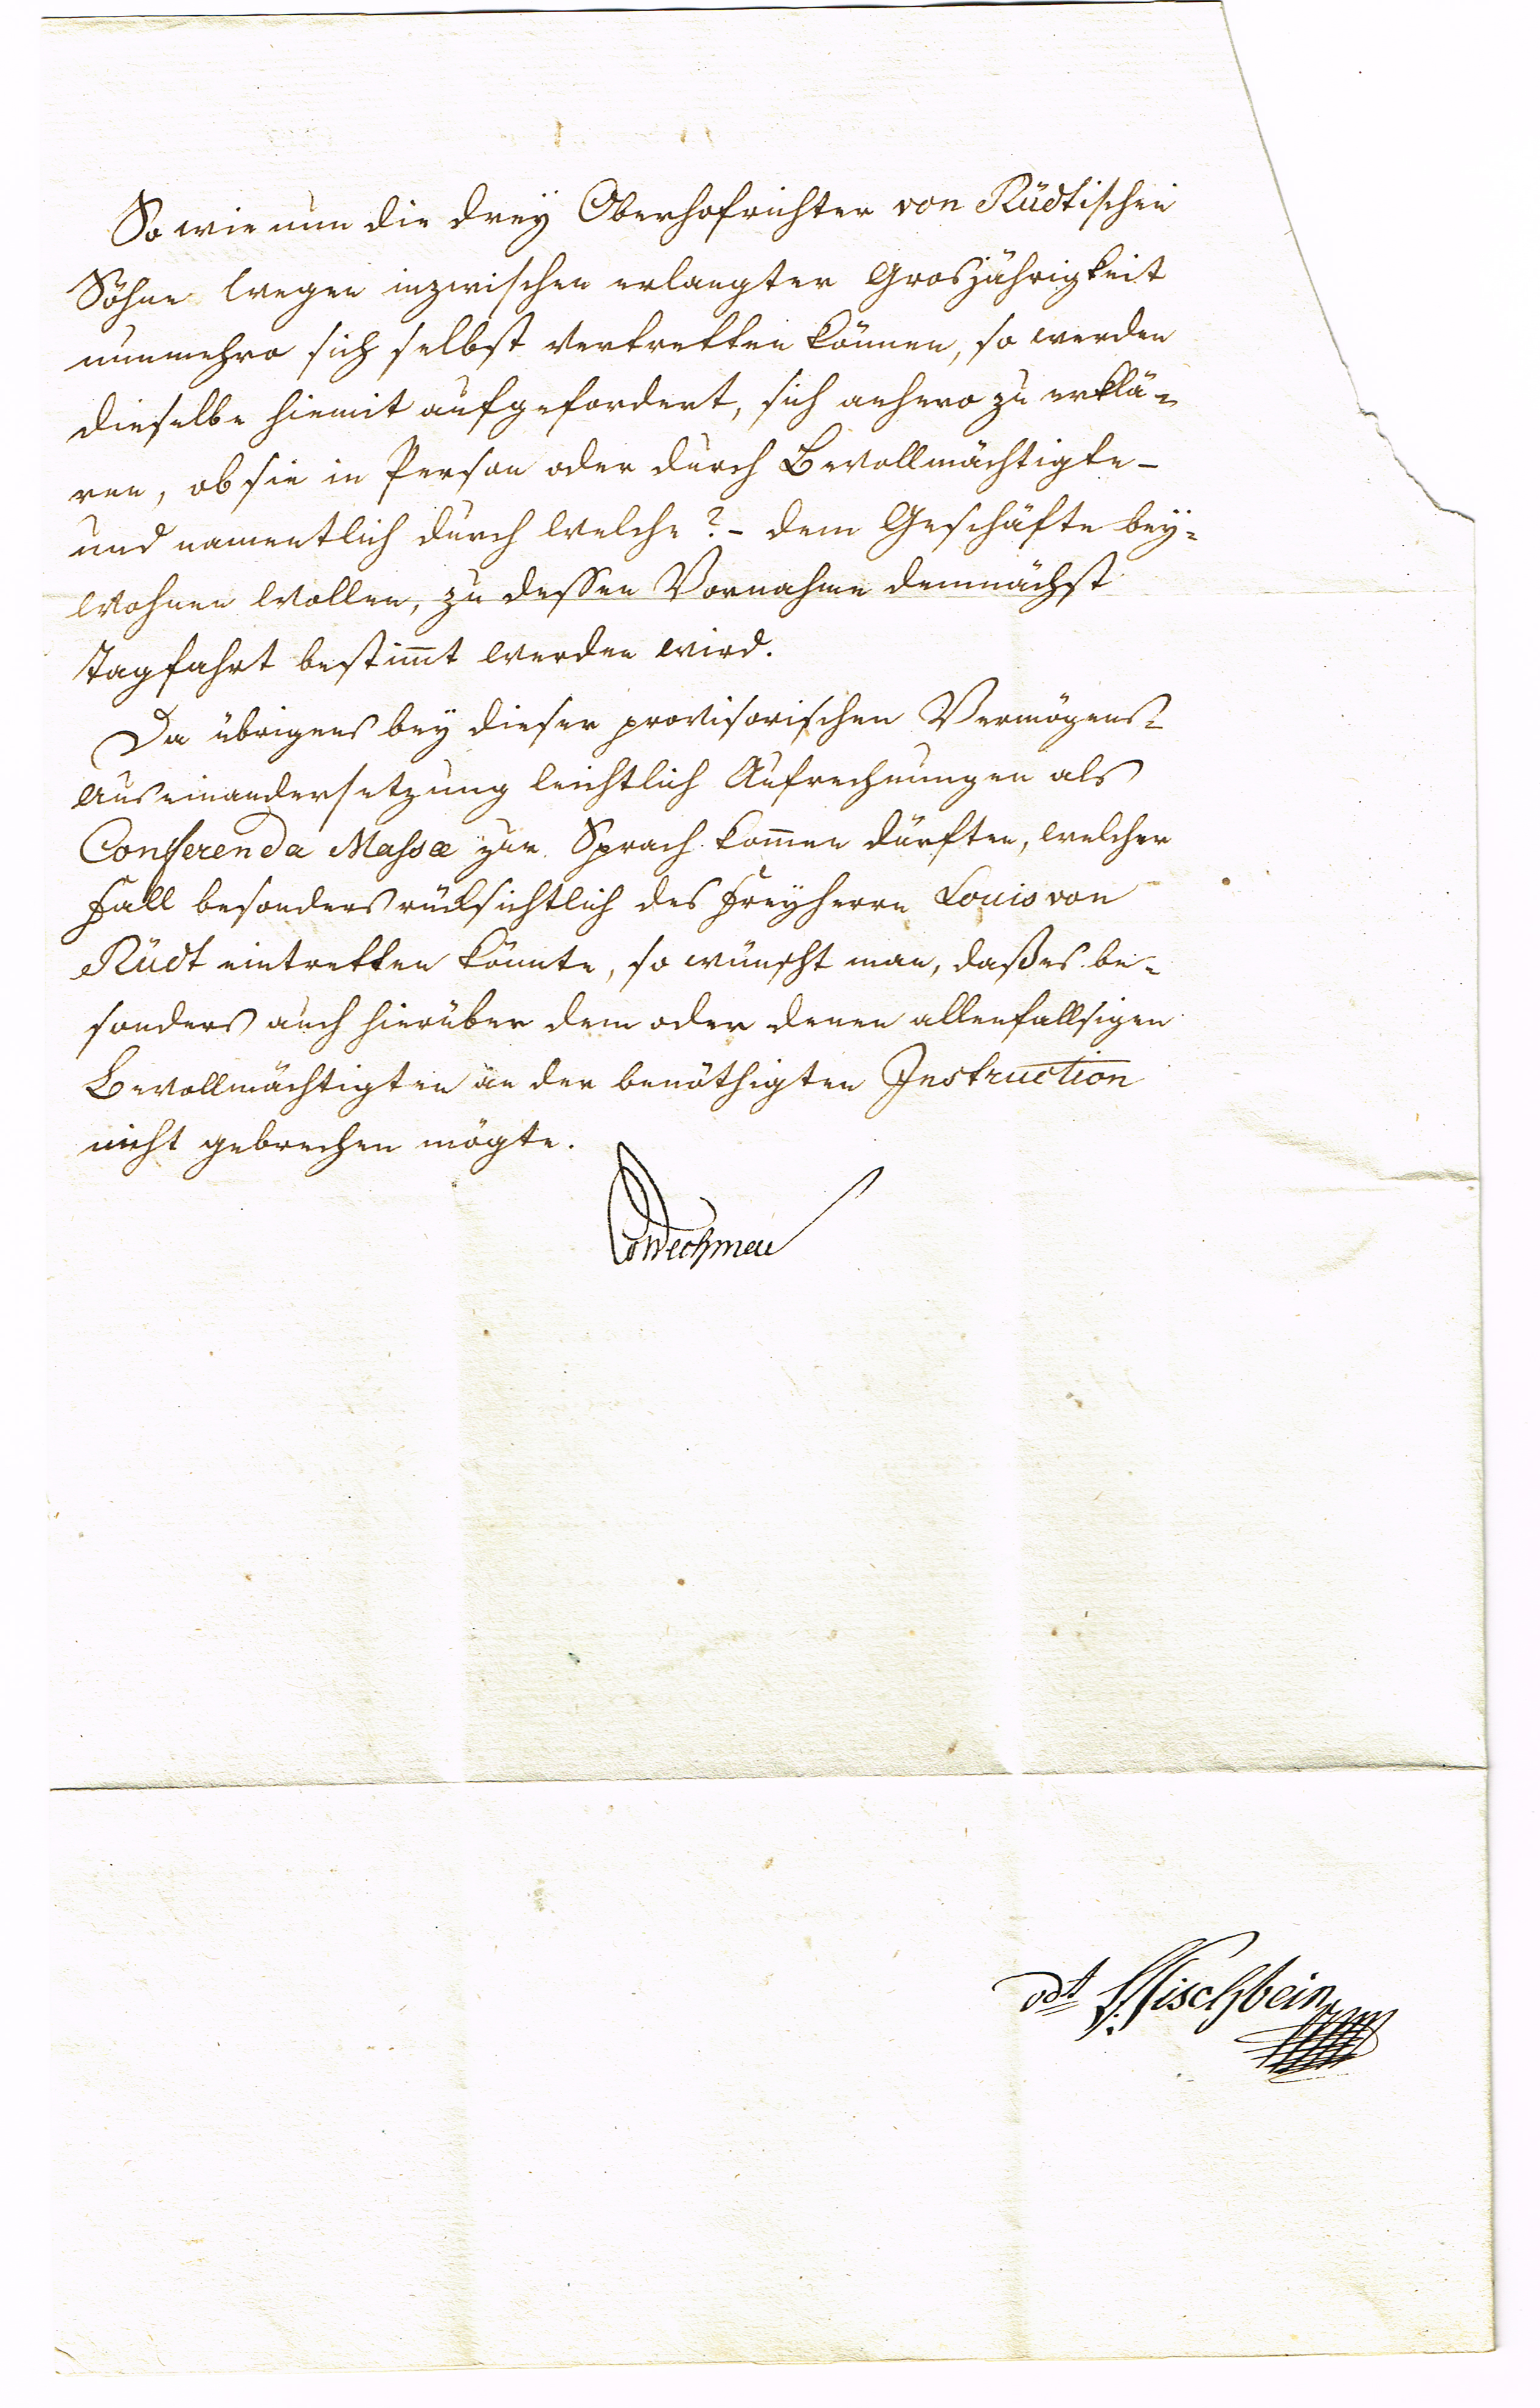 So wie nun die drey Oberhofrichter von Rüdtischen
Söhne wegen inzwischen erlangter Grosjährigkeit
nunmehro sich selbst vertretten können, so werden
dieselbe hiemit aufgefordert, sich anhero zu erklä-
ren, ob sie in Person oder durch Bevollmächtigte -
und namentlich durch welche? - dem Geschäfte bey-
wohnen wollen, zu dessen Vornahme demnächst
Tagfahrt bestim̄t werden wird.
Da übrigens bey dieser provisorischen Vermögens-
auseinandersetzung leichtlich Aufrechnungen als
Conferenda Massæ zur Sprach kom̄en dürften, welcher
Fall besonders rücksichtlich des Freyherrn Louis von
Rüdt eintretten könnte, so wünscht man, daß es be-
sonders auch hierüber dem oder denen allenfallsigen
Bevollmächtigten an der benöthigten Instruction
nicht gebrechen mögte.
vdt